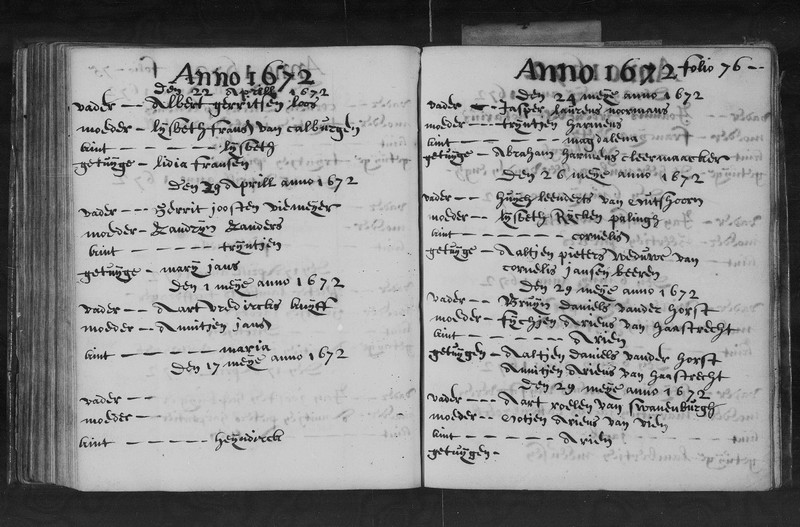 Anno 1672
den 22 Aprill 1672
vader -- Albert gerritsen loos
moeder -- lysbeth frans van calburgen
kint -- lysbeth
getuyge - lidia fransen
den 29 Aprill anno 1672
vader -- gerrit joosten
moeder - Sanders
kint -- tryntjen
getuyge - mary jans
den 1 meye anno 1672
vader -- Aart diricks kuyff
moeder -- Annitjen jans
kint -- maria
den 17 meye anno 1672
vader --
moeder --
kint -- heyndirck
Anno 1672 folio 76 --
den 24 meye anno 1672
vader -- Jasper laurens noormans
moeder -- tryntjen harmens
kint -- magdalena
getuyge - Abraham harmens cleermaacker
den 26 meye anno 1672
vader -- huych leenderts van
moeder -- lysbeth Rycken palingh
kint -- cornelis
getuyge - Aaltjen pieters weduwe van
cornelis jansen beeren
den 29 meye anno 1672
vader -- Bruyn daniels vander horst
moeder - fychjen Ariens van haastrecht
kint -- Arien
getuygen - Aaltjen daniels vander horst
Annitjen Ariens van haastrecht
den 29 meye anno 1672
vader -- Aart roelen van swanenburgh
moeder -- Ariens van
kint -- Arien
getuygen -